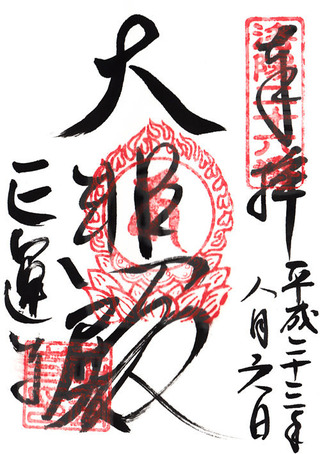 洛陽廿六番
奉拝
平成二十三年
八月六日
大悲殿
正運寺